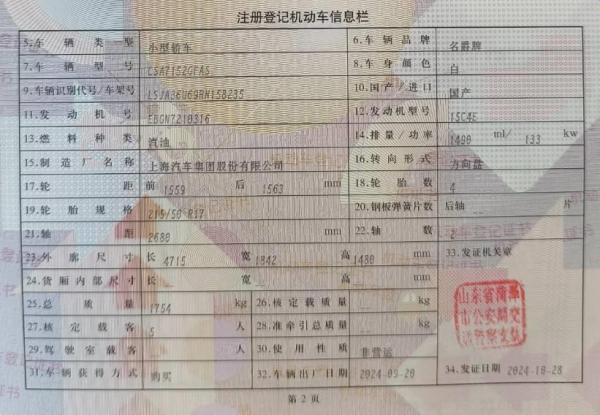 注册登记机动车信息栏
5.车辆类型 小型轿车 6.车辆品牌 名爵牌
7.车辆型号 CSA7152GFAS 8.车身颜色 白
9.车辆识别代号/车架号 LSJA36U69RN158235 10.国产/进口 国产
11.发动机号 EBGN7210316 12.发动机型号 15C4E
13.燃料种类 汽油 14.排量/功率 1490 ml/ 133 kw
15.制造厂名称 上海汽车集团股份有限公司 16.转向形式 方向盘
17.轮距 前 1559 后 1563 mm 18.轮胎数 4
19.轮胎规格 215/50 R17 20.钢板弹簧片数 后轴 -- 片
21.轴距 2680 mm 22.轴数 2
23.外廓尺寸 长 4715 宽 1842 高 1480 mm 33.发证机关章
24.货厢内部尺寸 长 -- 宽 -- 高 -- mm
25.总质量 1754 kg 26.核定载质量 -- kg
27.核定载客 5 人 28.准牵引总质量 -- kg
29.驾驶室载客 -- 人 30.使用性质 非营运
31.车辆获得方式 购买 32.车辆出厂日期 2024-09-20 34.发证日期 2024-10-28
第 2 页